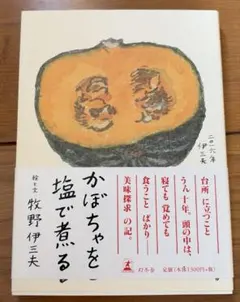 二〇一六年
伊三夫
台所に立つこと
うん十年。頭の中は、
寝ても覚めても
食うことばかり
美味探求の記。
かぼちゃを
塩で煮る
絵と文 牧野伊三夫
幻冬舎
定価(本体1300円+税)